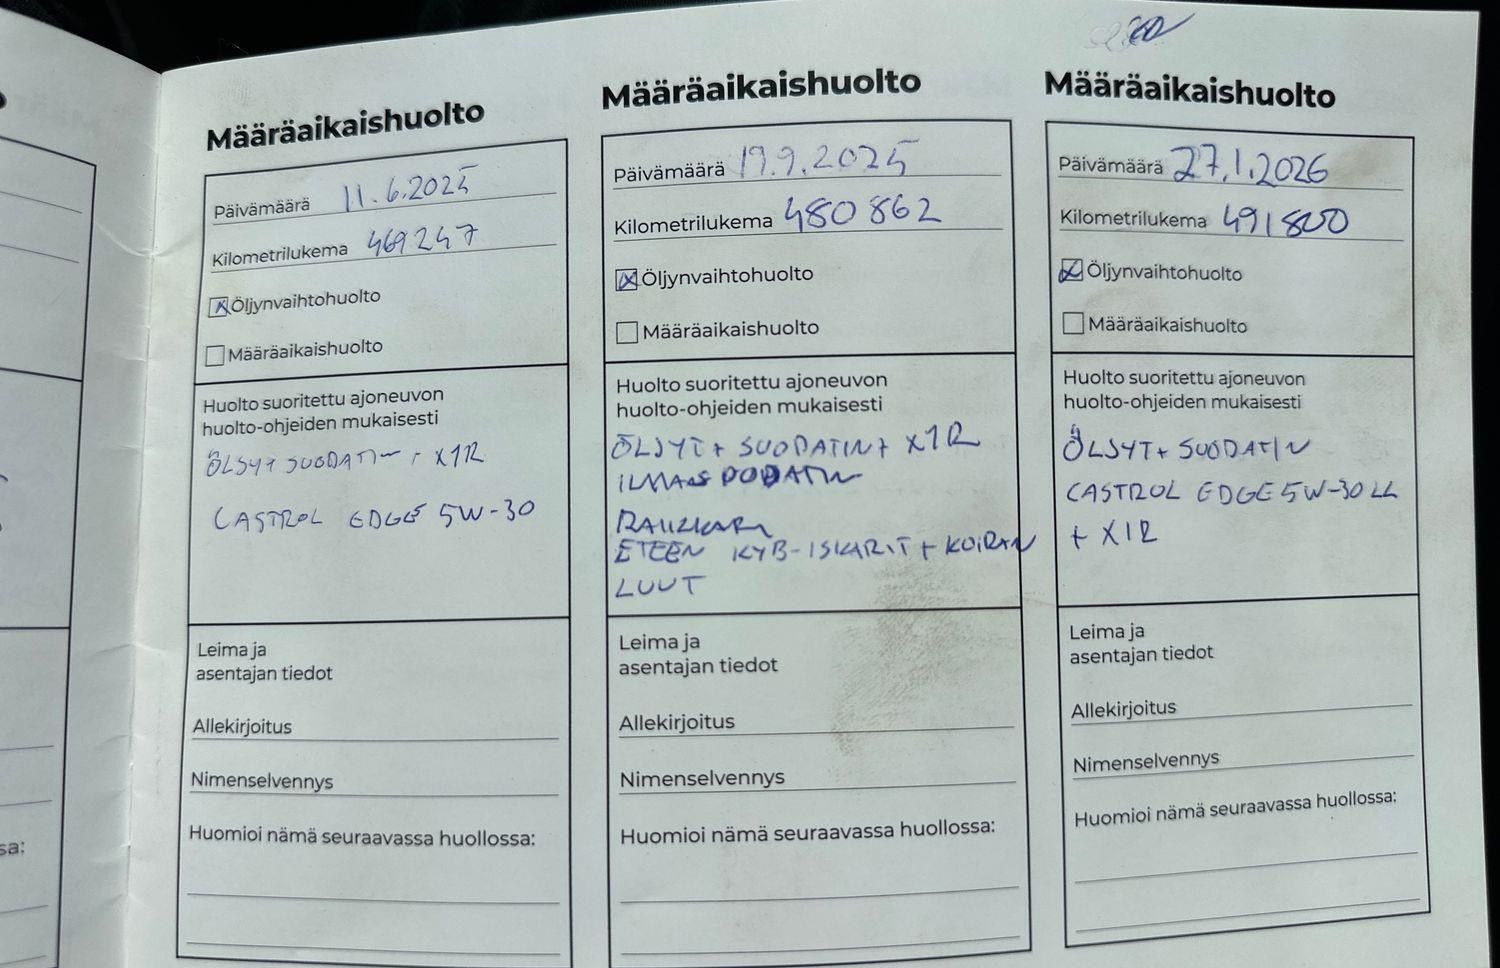 Määräaikaishuolto
Päivämäärä 11.6.2025
Kilometrilukema 469247
Öljynvaihtohuolto
Määräaikaishuolto
Huolto suoritettu ajoneuvon
huolto-ohjeiden mukaisesti
ÖLJYT SUODATIN + X1R
CASTROL EDGE 5W-30
Leima ja
asentajan tiedot
Allekirjoitus
Nimenselvennys
Huomioi nämä seuraavassa huollossa:
Määräaikaishuolto
Päivämäärä 19.9.2025
Kilometrilukema 480862
Öljynvaihtohuolto
Määräaikaishuolto
Huolto suoritettu ajoneuvon
huolto-ohjeiden mukaisesti
ÖLJYT + SUODATIN + X1R
ETEEN KYB-ISKARIT + KOIRAN
LUUT
Leima ja
asentajan tiedot
Allekirjoitus
Nimenselvennys
Huomioi nämä seuraavassa huollossa:
Määräaikaishuolto
Päivämäärä 27.1.2026
Kilometrilukema 491800
Öljynvaihtohuolto
Määräaikaishuolto
Huolto suoritettu ajoneuvon
huolto-ohjeiden mukaisesti
ÖLJYT + SUODATIN
CASTROL EDGE 5W-30 LL
+ X1R
Leima ja
asentajan tiedot
Allekirjoitus
Nimenselvennys
Huomioi nämä seuraavassa huollossa: